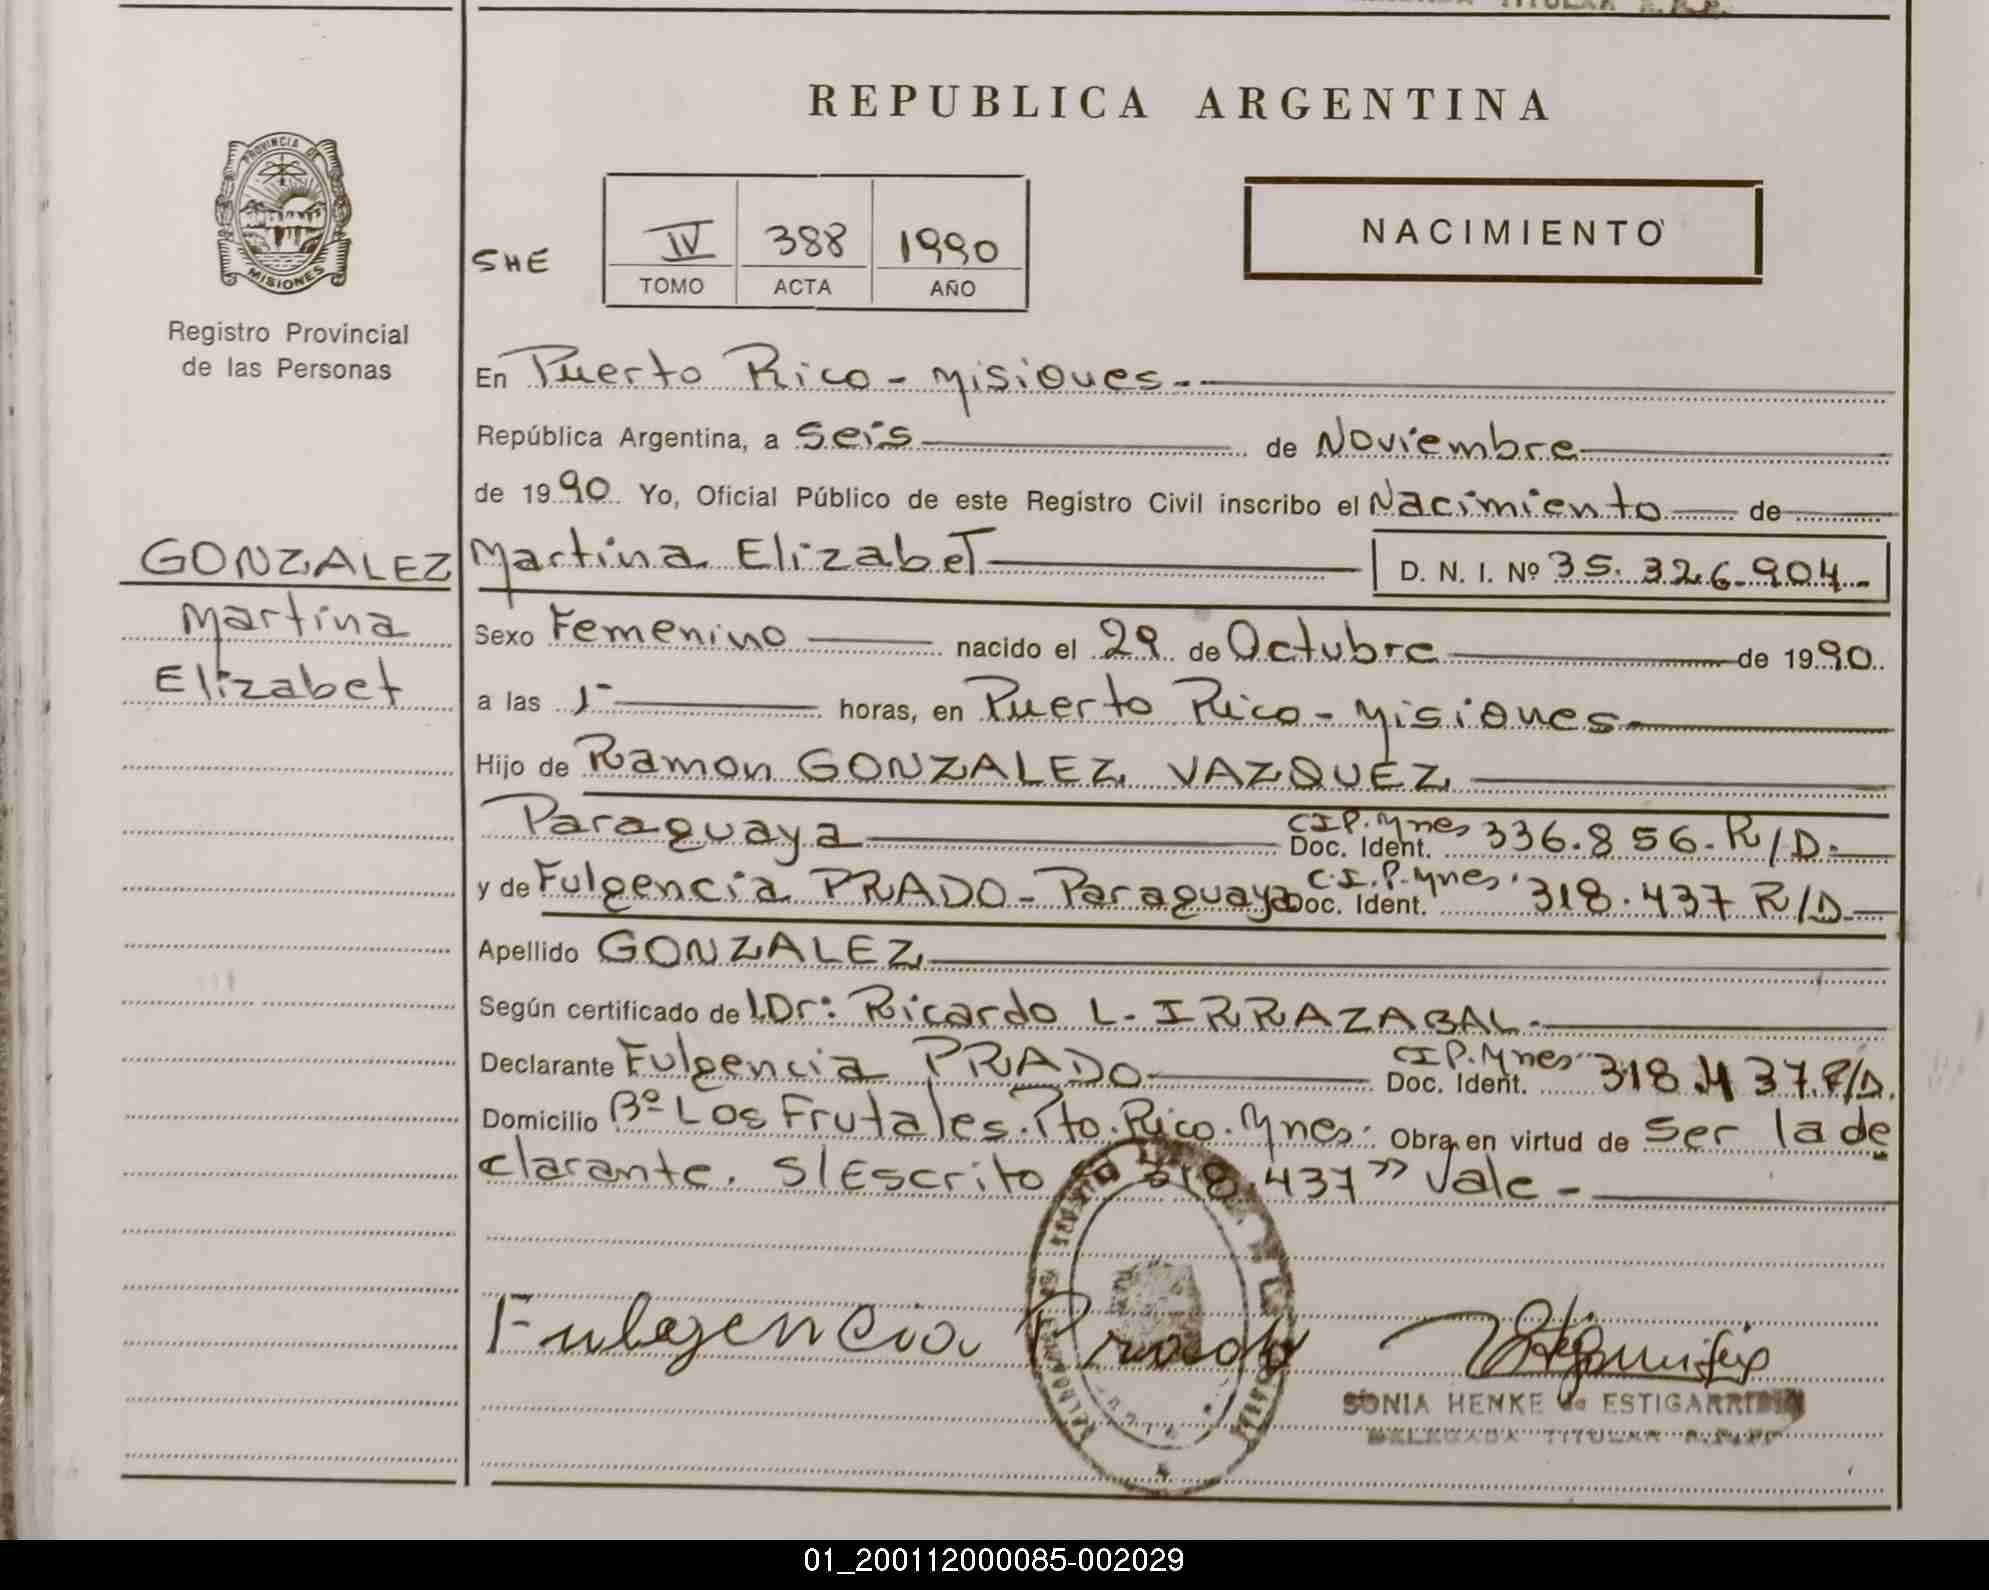 REPUBLICA ARGENTINA
PROVINCIA DE
MISIONES
Registro Provincial
de las Personas
SHE
IV 388 1990
TOMO ACTA AÑO
NACIMIENTO
En Puerto Rico - Misiones.-
República Argentina, a seis de Noviembre
de 1990 Yo, Oficial Público de este Registro Civil inscribo el Nacimiento de
GONZALEZ
Martina
Elizabet
Martina Elizabet D. N. I. Nº 35.326.904.-
Sexo Femenino nacido el 29 de Octubre de 1990.
a las 1- horas, en Puerto Rico - Misiones.
Hijo de Ramon GONZALEZ VAZQUEZ
Paraguaya C.I.P. Mnes Doc. Ident. 336.856. R/D.-
y de Fulgencia PRADO - Paraguaya C.I.P. Mnes. Doc. Ident. 318.437 R/D.-
Apellido GONZALEZ
Según certificado del Dr: Ricardo L. IRRAZABAL.-
Declarante Fulgencia PRADO C.I.P. Mnes Doc. Ident. 318.437. R/D.
Domicilio Bº Los Frutales. Pto. Rico. Mnes. Obra en virtud de ser la de
clarante. S/Escrito 318.437" Vale -
Fulgencia Prado
SONIA HENKE de ESTIGARRIBIA
DELEGADA TITULAR
01_200112000085-002029